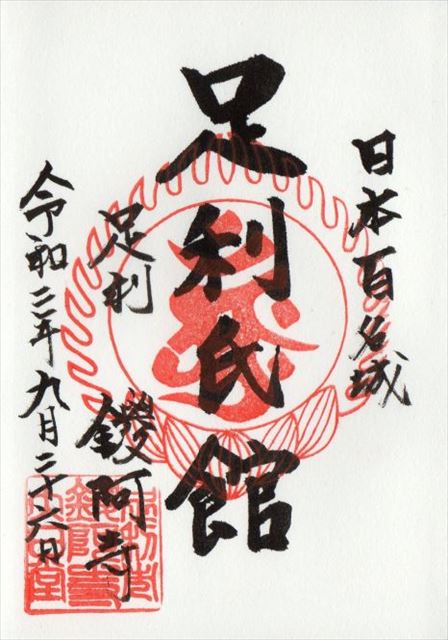 日本百名城
足利氏館
足利
鑁阿寺
令和二年九月二十六日